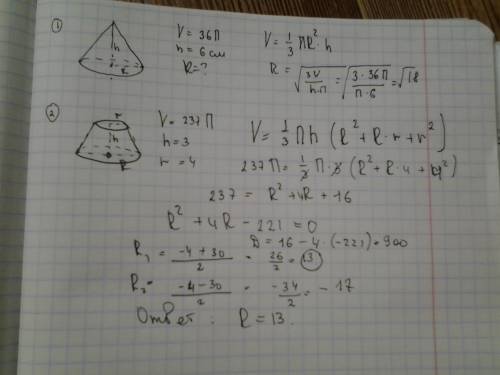 1
h
R
V = 36П
h = 6 см
R = ?
V = 1/3 ПR² · h
R = √(3V/(h·П)) = √(3·36П/(П·6)) = √18
2
r
h
R
V = 237 П
h = 3
r = 4
V = 1/3 Пh (R² + R·r + r²)
237П = 1/3 П · 3 (R² + R·4 + 4²)
237 = R² + 4R + 16
R² + 4R - 221 = 0
D = 16 - 4 · (-221) = 900
R₁ = (-4 + 30)/2 = 26/2 = 13
R₂ = (-4 - 30)/2 = -34/2 = -17
Ответ: R = 13.